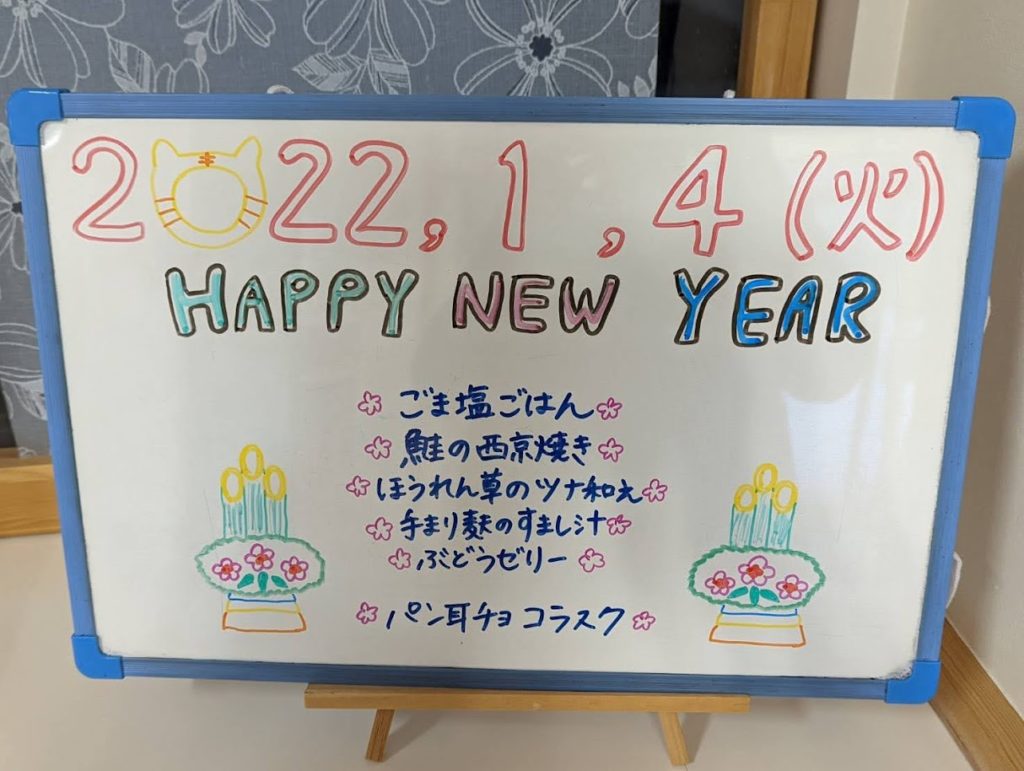 2022,1,4(火)
HAPPY NEW YEAR
ごま塩ごはん
鮭の西京焼き
ほうれん草のツナ和え
手まり麩のすまし汁
ぶどうゼリー
パン耳チョコラスク